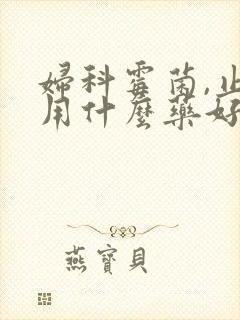 婦科霉菌,止
用什麼藥好
燕寶貝